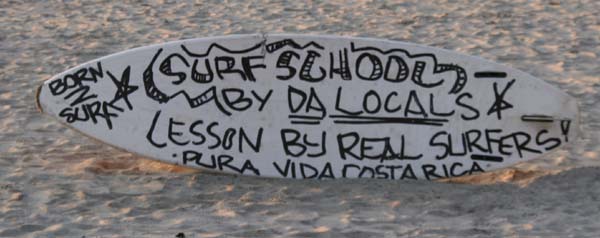 BORN
2
SURF
SURF SCHOOL
BY DA LOCALS
LESSON BY REAL SURFERS
PURA VIDA COSTA RICA